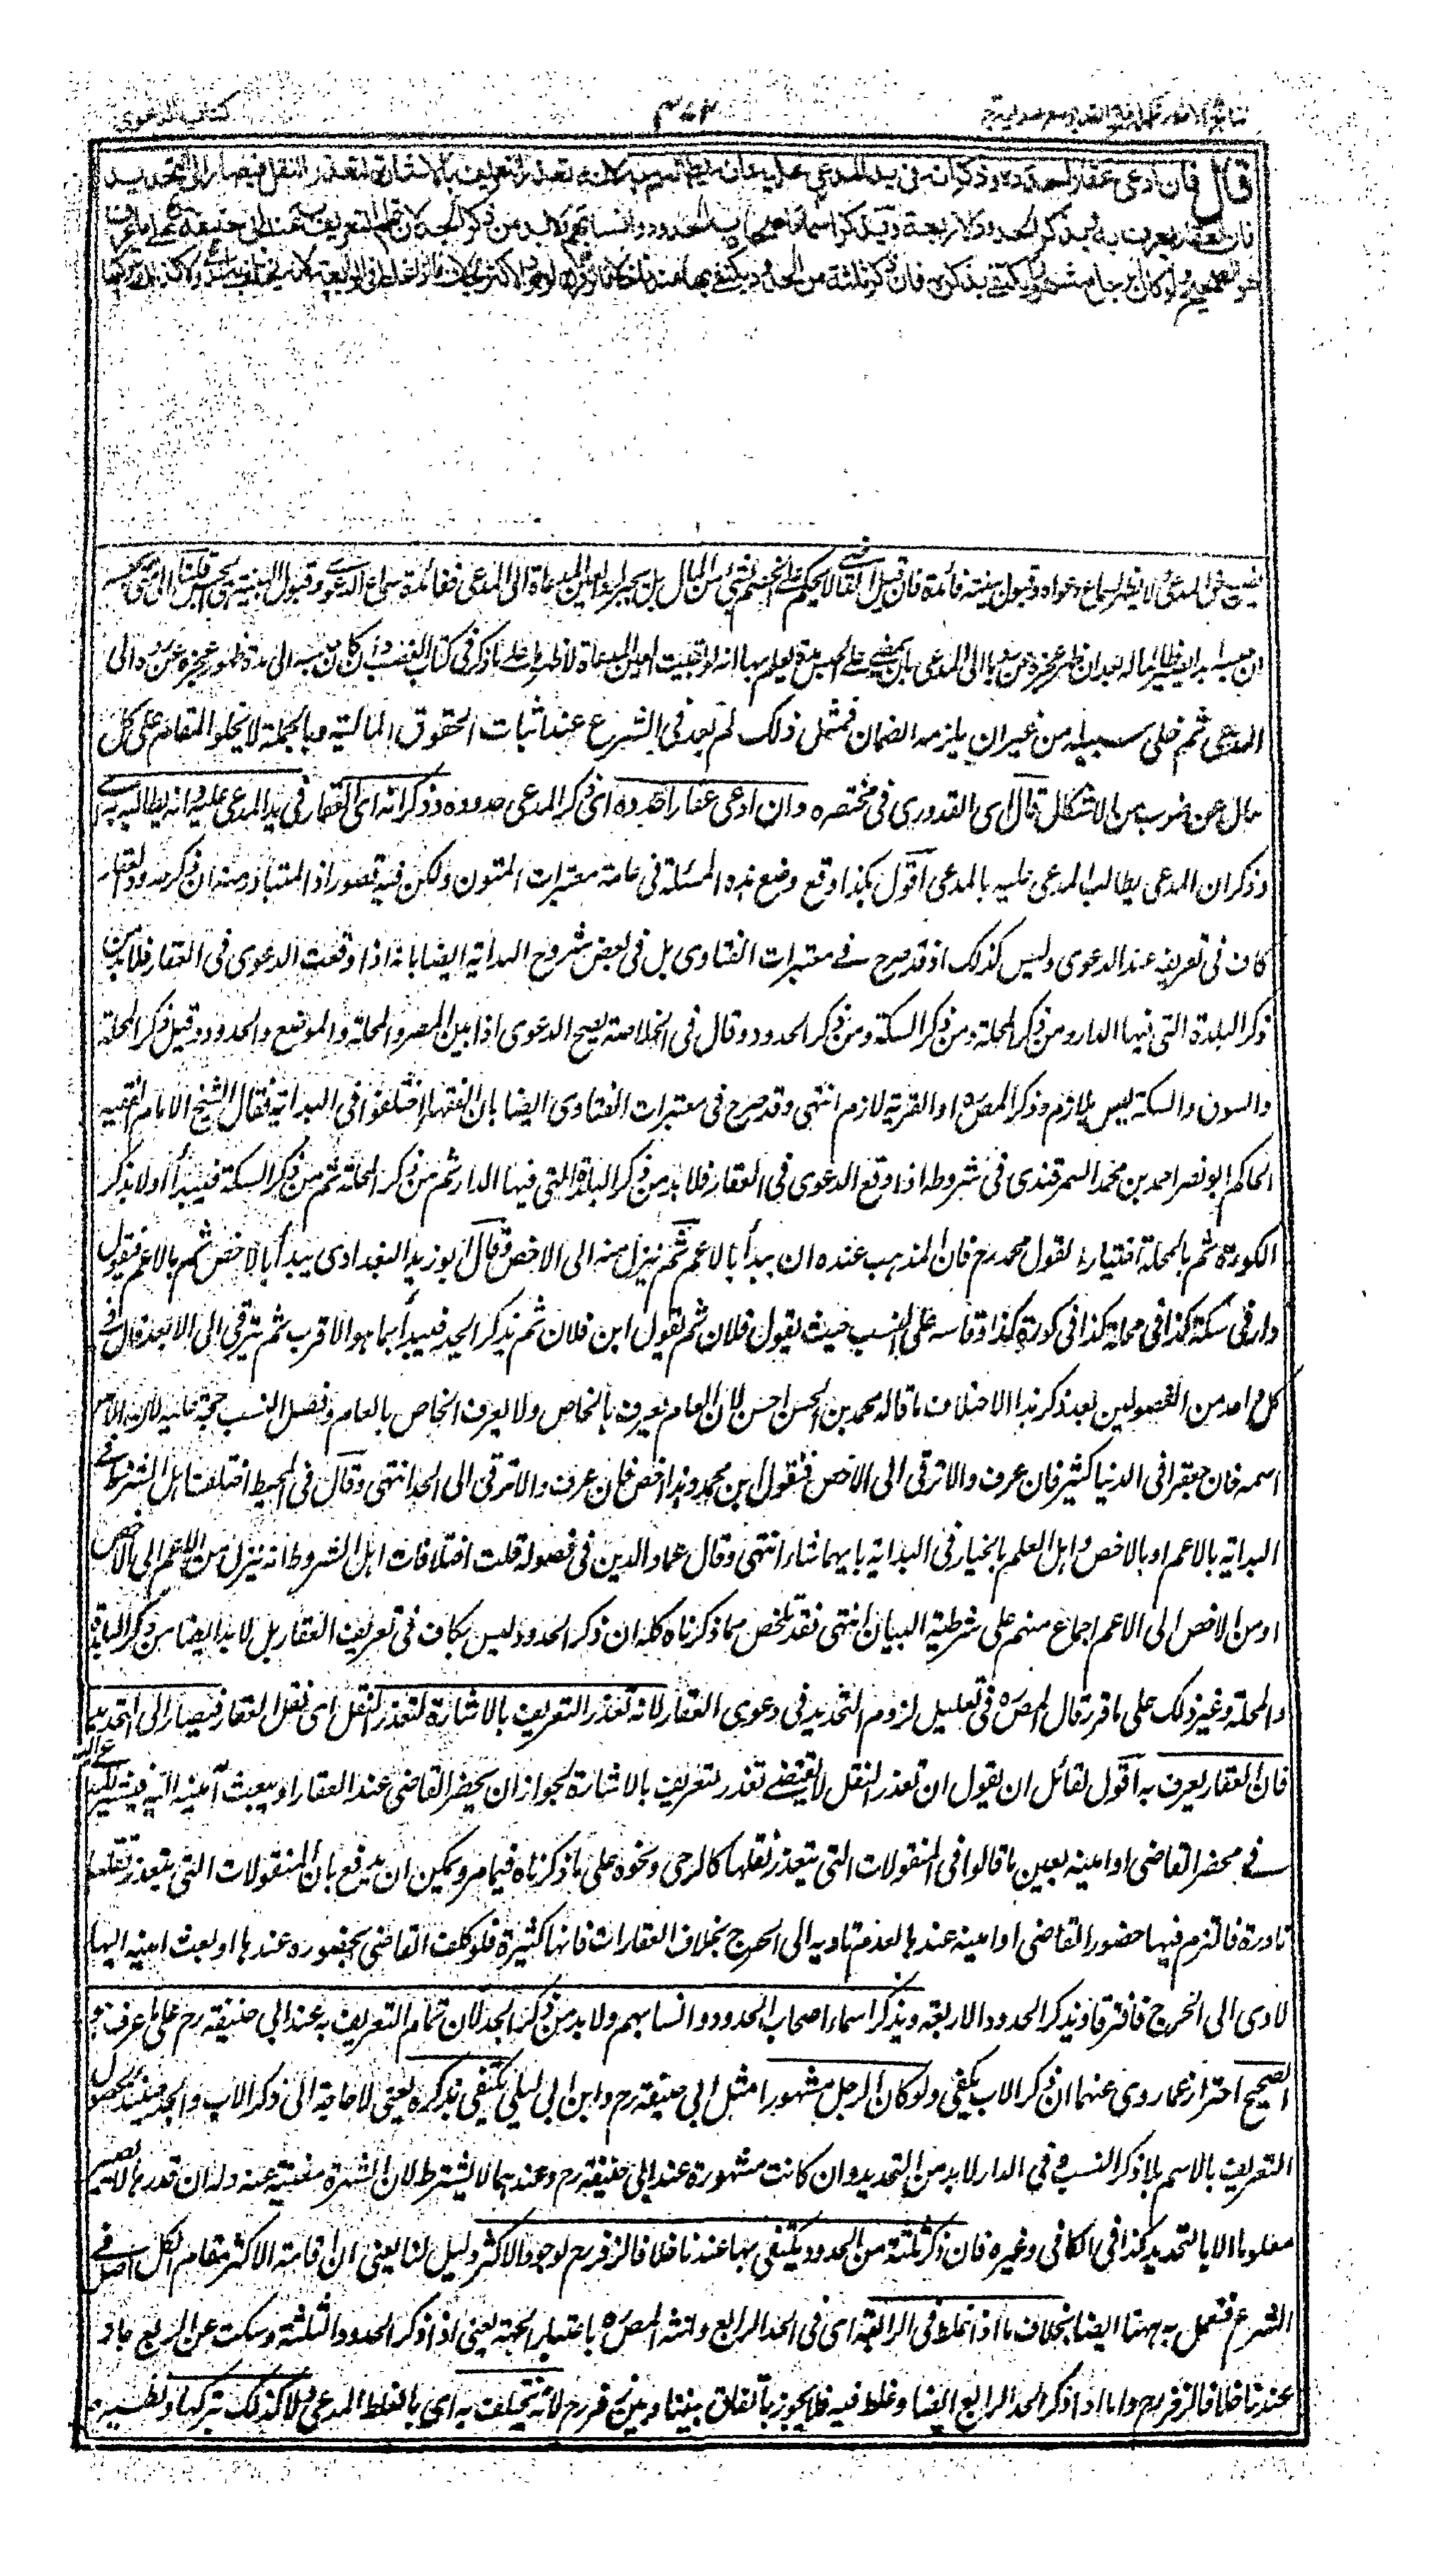 نتائج الافكار تكملة فتح القدير مع هداية ج
٣٧٣
كتاب الدعوى
قال فان ادعى عقارا حدده وذكر انه في يد المدعى عليه وانه يطالبه به لانه تعذر التعريف بالاشارة لتعذر النقل فيصار الى التحديد
فان العقار يعرف به ويذكر الحدود الاربعة ويذكر اسماء اصحاب الحدود وانسابهم ولابد من ذكر الجد لان تمام التعريف به عند ابي حنيفة على ما عرف
هو الصحيح ولو كان الرجل مشهورا يكتفى بذكره فان ذكر ثلثة من الحدود يكتفى بها عندنا خلافا لزفر لوجود الاكثر بخلاف ما اذا غلط في الرابعة لانه يختلف به المدعى ولا كذلك بتركها
حق المدعى لا يظهر لسماع دعواه وقبول بينته فائدة فان قيل القاضي لا يحكم على الخصم بشئ من المال بل يجبر الى المدعى ففائدة سماع الدعوى وقبول البينة الحبس قلنا الى متى يحبس
ان حبس ابدا يصير ظالما له بعد ان ظهر عجزه عن ردها الى المدعى بان يمضى على الحبس مدة يعلم بها انه لو بقيت العين المدعاة لاظهرها على ما ذكر في كتاب الغصب وان كان حبسه الى مدة ظهور عجزه عن رده الى
المدعى ثم خلى سبيله من غير ان يلزمه الضمان فمثل ذلك لم يعد في الشرع عند اثبات الحقوق المالية وبالجملة لا يخلو المقام على كل
حال عن ضرب من الاشكال قال اى القدورى في مختصره وان ادعى عقارا حدده اى ذكر المدعى حدوده وذكر انه اى العقار في يد المدعى عليه وانه يطالبه به اى
وذكر ان المدعى يطالب المدعى عليه بالمدعى اقول هكذا وقع وضع هذه المسئلة في عامة معتبرات المتون ولكن فيه قصور اذ المتبادر منه ان ذكر حدود العقار
كاف في تعريفه عند الدعوى وليس كذلك اذ قد صرح في معتبرات الفتاوى بل في بعض شروح الهداية ايضا بانه اذا وقعت الدعوى في العقار فلا بد من
ذكر البلدة التى فيها الدار ومن ذكر المحلة ومن ذكر السكة ومن ذكر الحدود وقال في الخلاصة يصح الدعوى اذا بين المصر والمحلة والموضع والحدود وقيل ذكر المحلة
والسوق والسكة ليس بلازم وذكر المصر او القرية لازم انتهى وقد صرح في معتبرات الفتاوى ايضا بان الفقهاء اختلفوا في البداية فقال الشيخ الامام الفقيه
الحاكم ابو نصر احمد بن محمد السمرقندى في شروطه اذا وقع الدعوى في العقار فلا بد من ذكر البلدة التى فيها الدار ثم من ذكر المحلة ثم من ذكر السكة فيبدأ اولا بذكر
الكورة ثم بالمحلة اختيارا لقول محمد رح فان المذهب عنده ان يبدأ بالاعم ثم ينزل منه الى الاخص وقال ابو زيد البغدادى يبدأ بالاخص ثم بالاعم فيقول
دار في سكة كذا في محلة كذا في كورة كذا وقاسه على النسب حيث يقول فلان ثم يقول ابن فلان ثم يذكر الجد فيبدأ بما هو الاقرب ثم يترقى الى الابعد قال في
كل واحد من الفصولين بعد ذكر هذا الاختلاف ما قاله محمد بن الحسن احسن لان العام يعرف بالخاص ولا يعرف الخاص بالعام وفصل النسب حجة عليه لان الاعم
اسمه فان جعفرا في الدنيا كثير فان عرف والا ترقى الى الاخص فيقول ابن محمد وهذا اخص فان عرف والا ترقى الى الجد انتهى وقال في المحيط اختلفت اهل الشروط في
البداية بالاعم او بالاخص واهل العلم بالخيار في البداية بايهما شاء انتهى وقال عماد الدين في فصوله قلت اختلافات اهل الشروط انه ينزل من الاعم الى الاخص
او من الاخص الى الاعم اجماع منهم على شرطية البيان انتهى فقد تلخص مما ذكرناه كله ان ذكر الحدود ليس بكاف في تعريف العقار بل لا بد ايضا من ذكر البلدة
والمحلة وغير ذلك على ما قرر قال المصره في تعليل لزوم التحديد في دعوى العقار لانه تعذر التعريف بالاشارة لتعذر النقل اى نقل العقار فيصار الى التحديد
فان العقار يعرف به اقول لقائل ان يقول ان تعذر النقل لا يقتضى تعذر التعريف بالاشارة لجواز ان يحضر القاضى عند العقار او يبعث امينه اليه فيشير اليه
في محضر القاضى او امينه بعين ما قالوا في المنقولات التى يتعذر نقلها كالرحى ونحوه على ما ذكرناه فيما مر ويمكن ان يدفع بان المنقولات التى يتعذر نقلها
نادرة فالتزم فيها حضور القاضى او امينه عندها لعدم تاديه الى الحرج بخلاف العقارات فانها كثيرة فلو كلف القاضى بحضوره عندها او بعث امينه اليها
لادى الى الحرج فافترقا ويذكر الحدود الاربعة ويذكر اسماء اصحاب الحدود وانسابهم ولا بد من ذكر الجد لان تمام التعريف به عند ابى حنيفة رح على ما عرف هو
الصحيح احترازا عما روى عنهما ان ذكر الاب يكفى ولو كان الرجل مشهورا مثل ابى حنيفة رح وابن ابى ليلى يكتفى بذكره يعنى لا حاجة الى ذكر الاب والجد حينئذ لحصول
التعريف بالاسم بلا ذكر النسب وفي الدار لا بد من التحديد وان كانت مشهورة عند ابى حنيفة رح وعندهما لا يشترط لان الشهرة مغنية عنه وله ان قدرها لا يصير
معلوما الا بالتحديد كذا في الكافى وغيره فان ذكر ثلثة من الحدود يكتفى بها عندنا خلافا لزفر رح لوجود الاكثر دليل لنا يعنى ان اقامة الاكثر مقام الكل اصل في
الشرع فنعمل به ههنا ايضا بخلاف ما اذا غلط في الرابعة اى في الحد الرابع وانثه المصره باعتبار الجهة يعنى اذا ذكر الحدود الثلثة وسكت عن الرابع جاز
عندنا خلافا لزفر رح واما اذا ذكر الحد الرابع ايضا وغلط فيه فلا يجوز باتفاق بيننا وبين زفر رح لانه يختلف به اى بالغلط المدعى ولا كذلك بتركها ونظيره